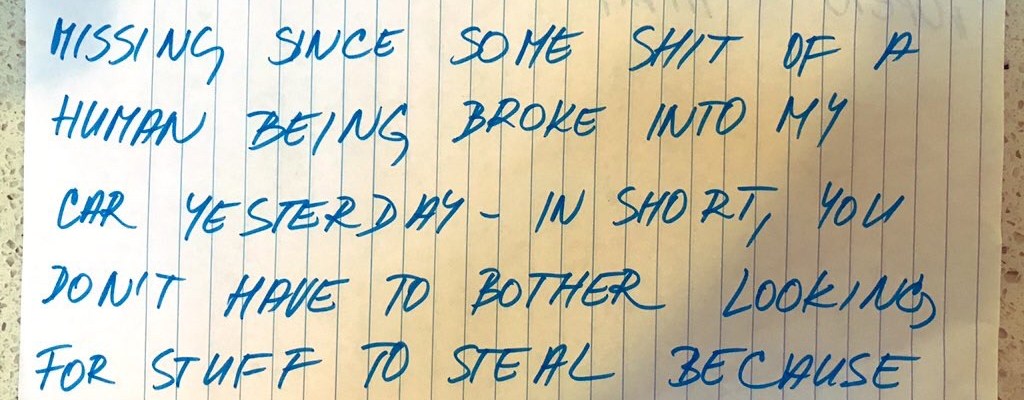 MISSING SINCE SOME SHIT OF A
HUMAN BEING BROKE INTO MY
CAR YESTERDAY - IN SHORT, YOU
DON'T HAVE TO BOTHER LOOKING
FOR STUFF TO STEAL BECAUSE